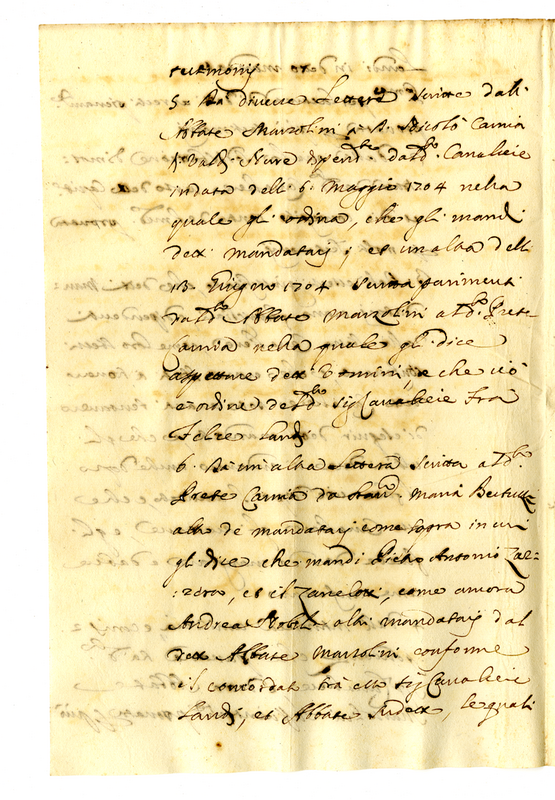 testimonij
5. Da diverse Lettere scritte dall'
Abbate Marzolini a D. Nicolò Camia
Nure d. Cavaliere
in data delli 6. Maggio 1704 nella
quale gli ordina, che gli mandi
detti mandatarij, et un altra delli
13. Giugno 1704 scritta parimenti
da d.º Abbate Marzolini a d.º Prete
Camia nella quale gli dice
aspettare detti Uomini, e che ciò
è ordine de Sig Cavaliere Fra
Felice Landi
6. Da un altra Lettera scritta a d.º
Prete Camia da Maria
de mandatarij come sopra in cui
gli dice che mandi Pietro Antonio Zae=
=zera, et il Zanelotti, come ancora
Andrea Nobili altri mandatarij dal
detto Abbate Marzolini conforme
il concordato frà esso Sig Cavaliere
Landi, et Abbate sudetto, le quali